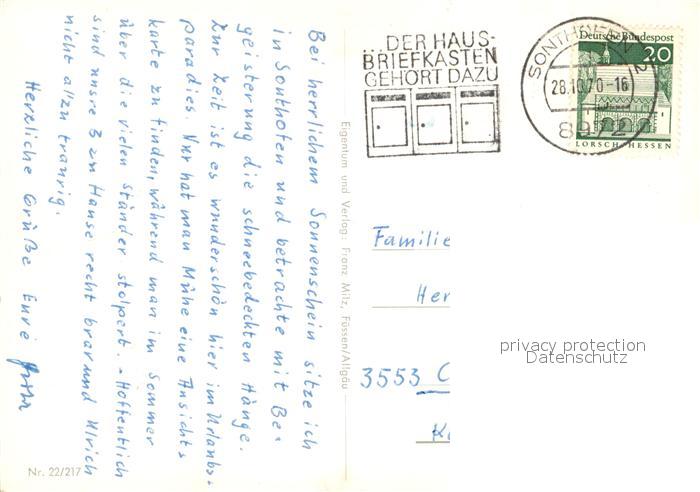 Bei herrlichem Sonnenschein sitze ich
in Sonthofen und betrachte mit Be-
geisterung die schneebedeckten Hänge.
Zur Zeit ist es wunderschön hier im Urlaubs-
paradies. Nur hat man Mühe eine Ansichts
karte zu finden, während man im Sommer
über die vielen Ständer stolpert. - Hoffentlich
sind unsere 3 zu Hause recht brav und Ulrich
nicht allzu traurig.
Herzliche Grüße Eure
Nr. 22/217
Eigentum und Verlag: Franz Milz, Füssen/Allgäu
...DER HAUS-
BRIEFKASTEN
GEHÖRT DAZU
SONTHOFEN
28.10.70-16
8972
Deutsche Bundespost
20
LORSCH/HESSEN
Familie
Her
3553 C
privacy protection
Datenschutz